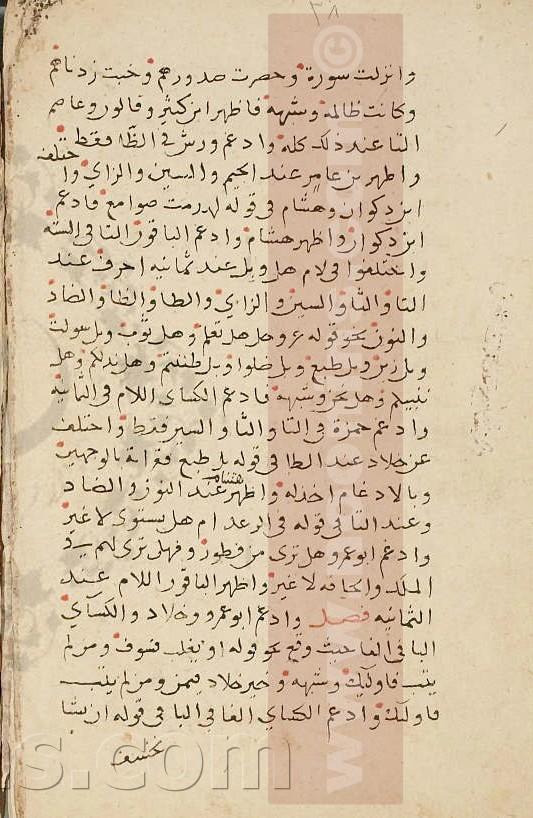 ٣٨
وانزلت سورة وحصرت صدورهم وخبت زدناهم
وكانت ظالمة وشبهه فاظهر ابن كثير وقالون وعاصم
التا عند ذلك كله وادغم ورش في الظا فقط
واظهر بن عامر عند الجيم والسين والزاي واختلف
ابن ذكوان وهشام في قوله لهدمت صوامع فادغم
ابن ذكوان واظهر هشام وادغم الباقون التا في الستة
واختلفوا في لام هل وبل عند ثمانيه احرف عند
التا والثا والسين والزاي والطا والظا والضاد
والنون نحو قوله عز وجل هل تعلم وهل ثوب وبل سولت
وبل زين وبل طبع وبل ضلوا وبل ظننتم وهل ندلكم وهل
ننبيكم وهل نحن وشبهه فادغم الكساى اللام في الثمانيه
وادغم حمزة في التا والثا والسين فقط واختلف
عن خلاد عند الطا في قوله بل طبع فقراته بالوجهين
وبالادغام اخذ له واظهر هشام عند النون والضاد
وعند التا في قوله في الرعد ام هل يستوى لا غير
وادغم ابو عمرو هل ترى من فطور وفهل ترى لهم في
الملك والحاقه لا غير واظهر الباقون اللام عند
الثمانيه فصل وادغم ابو عمرو وخلاد والكساي
البا في الفا حيث وقع نحو قوله او يغلب فسوف ومن لم
يتب فاوليك وشبهه وخير خلاد فيمن ومن لم يتب
فاوليك وادغم الكساي الفا في البا في قوله ان يشا
نخسف
www.
s.com
©